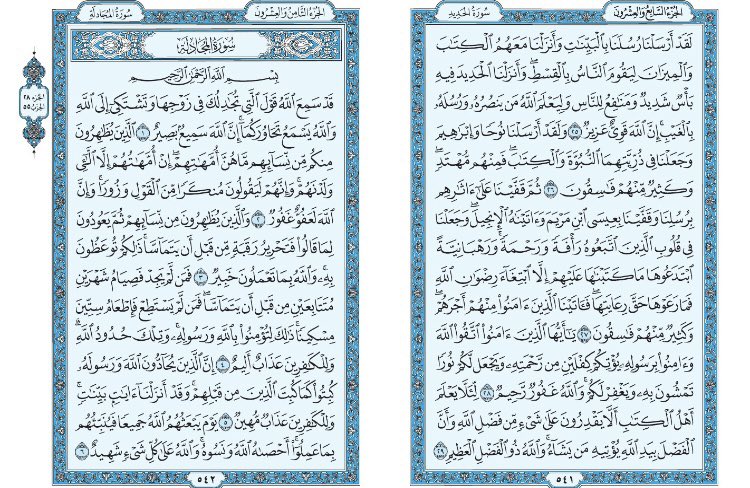 الجُزْءُ السَّابِعُ وَالعِشْرُونَ
سُورَةُ الحَدِيدِ
لَقَدْ أَرْسَلْنَا رُسُلَنَا بِالْبَيِّنَٰتِ وَأَنزَلْنَا مَعَهُمُ الْكِتَٰبَ
وَالْمِيزَانَ لِيَقُومَ النَّاسُ بِالْقِسْطِ ۖ وَأَنزَلْنَا الْحَدِيدَ فِيهِ
بَأْسٌ شَدِيدٌ وَمَنَٰفِعُ لِلنَّاسِ وَلِيَعْلَمَ اللَّهُ مَن يَنصُرُهُۥ وَرُسُلَهُۥ
بِالْغَيْبِ ۚ إِنَّ اللَّهَ قَوِيٌّ عَزِيزٌ ٢٥ وَلَقَدْ أَرْسَلْنَا نُوحًا وَإِبْرَٰهِيمَ
وَجَعَلْنَا فِي ذُرِّيَّتِهِمَا النُّبُوَّةَ وَالْكِتَٰبَ ۖ فَمِنْهُم مُّهْتَدٍ ۖ
وَكَثِيرٌ مِّنْهُمْ فَٰسِقُونَ ٢٦ ثُمَّ قَفَّيْنَا عَلَىٰٓ ءَاثَٰرِهِم
بِرُسُلِنَا وَقَفَّيْنَا بِعِيسَى ابْنِ مَرْيَمَ وَءَاتَيْنَٰهُ الْإِنجِيلَ ۖ وَجَعَلْنَا
فِي قُلُوبِ الَّذِينَ اتَّبَعُوهُ رَأْفَةً وَرَحْمَةً ۚ وَرَهْبَانِيَّةً
ابْتَدَعُوهَا مَا كَتَبْنَٰهَا عَلَيْهِمْ إِلَّا ابْتِغَآءَ رِضْوَٰنِ اللَّهِ
فَمَا رَعَوْهَا حَقَّ رِعَايَتِهَا ۖ فَـَٔاتَيْنَا الَّذِينَ ءَامَنُوا۟ مِنْهُمْ أَجْرَهُمْ ۖ
وَكَثِيرٌ مِّنْهُمْ فَٰسِقُونَ ٢٧ يَٰٓأَيُّهَا الَّذِينَ ءَامَنُوا۟ اتَّقُوا۟ اللَّهَ
وَءَامِنُوا۟ بِرَسُولِهِۦ يُؤْتِكُمْ كِفْلَيْنِ مِن رَّحْمَتِهِۦ وَيَجْعَل لَّكُمْ نُورًا
تَمْشُونَ بِهِۦ وَيَغْفِرْ لَكُمْ ۚ وَاللَّهُ غَفُورٌ رَّحِيمٌ ٢٨ لِّئَلَّا يَعْلَمَ
أَهْلُ الْكِتَٰبِ أَلَّا يَقْدِرُونَ عَلَىٰ شَيْءٍ مِّن فَضْلِ اللَّهِ ۙ وَأَنَّ
الْفَضْلَ بِيَدِ اللَّهِ يُؤْتِيهِ مَن يَشَآءُ ۚ وَاللَّهُ ذُو الْفَضْلِ الْعَظِيمِ ٢٩
٥٤١
الجُزْءُ الثَّامِنُ وَالعِشْرُونَ
سُورَةُ المُجَادلَةِ
سُورَةُ المُجَادلَةِ
بِسْمِ اللَّهِ الرَّحْمَٰنِ الرَّحِيمِ
قَدْ سَمِعَ اللَّهُ قَوْلَ الَّتِي تُجَٰدِلُكَ فِي زَوْجِهَا وَتَشْتَكِيٓ إِلَى اللَّهِ
وَاللَّهُ يَسْمَعُ تَحَاوُرَكُمَآ ۚ إِنَّ اللَّهَ سَمِيعٌۢ بَصِيرٌ ١ الَّذِينَ يُظَٰهِرُونَ
مِنكُم مِّن نِّسَآئِهِم مَّا هُنَّ أُمَّهَٰتِهِمْ ۖ إِنْ أُمَّهَٰتُهُمْ إِلَّا الَّٰٓـِٔي
وَلَدْنَهُمْ ۚ وَإِنَّهُمْ لَيَقُولُونَ مُنكَرًا مِّنَ الْقَوْلِ وَزُورًا ۚ وَإِنَّ
اللَّهَ لَعَفُوٌّ غَفُورٌ ٢ وَالَّذِينَ يُظَٰهِرُونَ مِن نِّسَآئِهِمْ ثُمَّ يَعُودُونَ
لِمَا قَالُوا۟ فَتَحْرِيرُ رَقَبَةٍ مِّن قَبْلِ أَن يَتَمَآسَّا ۚ ذَٰلِكُمْ تُوعَظُونَ
بِهِۦ ۚ وَاللَّهُ بِمَا تَعْمَلُونَ خَبِيرٌ ٣ فَمَن لَّمْ يَجِدْ فَصِيَامُ شَهْرَيْنِ
مُتَتَابِعَيْنِ مِن قَبْلِ أَن يَتَمَآسَّا ۖ فَمَن لَّمْ يَسْتَطِعْ فَإِطْعَامُ سِتِّينَ
مِسْكِينًا ۚ ذَٰلِكَ لِتُؤْمِنُوا۟ بِاللَّهِ وَرَسُولِهِۦ ۚ وَتِلْكَ حُدُودُ اللَّهِ ۗ
وَلِلْكَٰفِرِينَ عَذَابٌ أَلِيمٌ ٤ إِنَّ الَّذِينَ يُحَآدُّونَ اللَّهَ وَرَسُولَهُۥ
كُبِتُوا۟ كَمَا كُبِتَ الَّذِينَ مِن قَبْلِهِمْ ۚ وَقَدْ أَنزَلْنَآ ءَايَٰتٍۭ بَيِّنَٰتٍ ۚ
وَلِلْكَٰفِرِينَ عَذَابٌ مُّهِينٌ ٥ يَوْمَ يَبْعَثُهُمُ اللَّهُ جَمِيعًا فَيُنَبِّئُهُم
بِمَا عَمِلُوٓا۟ ۚ أَحْصَىٰهُ اللَّهُ وَنَسُوهُ ۚ وَاللَّهُ عَلَىٰ كُلِّ شَيْءٍ شَهِيدٌ ٦
٥٤٢
الجزء ٢٨
الحزب ٥٥